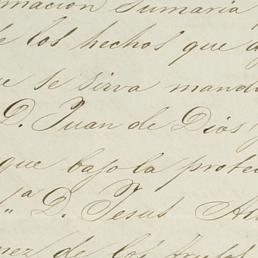 rmacion Sumaria
e los hechos que a
e se sirva mand
D. Juan de Dios
que bajo la prote
D. Jesus
nez de los